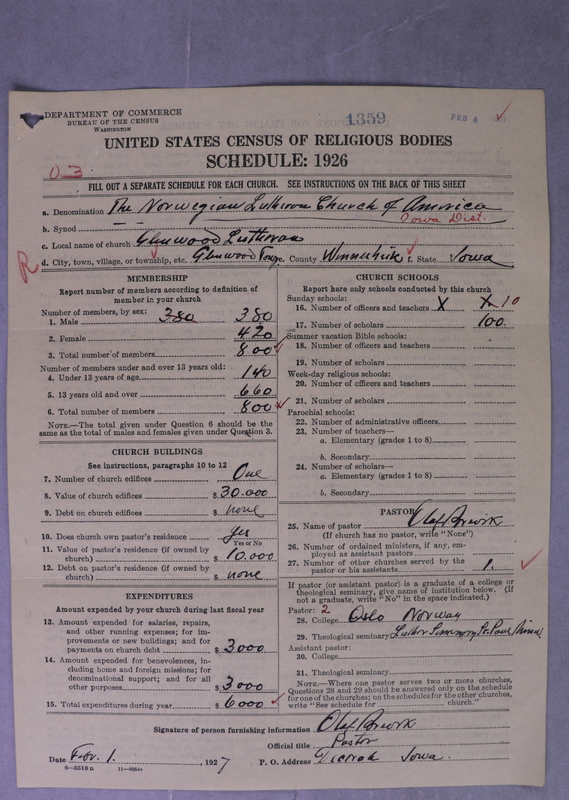 DEPARTMENT OF COMMERCE
BUREAU OF THE CENSUS
WASHINGTON
1359
FEB 4
UNITED STATES CENSUS OF RELIGIOUS BODIES
SCHEDULE: 1926
03
FILL OUT A SEPARATE SCHEDULE FOR EACH CHURCH. SEE INSTRUCTIONS ON THE BACK OF THIS SHEET
a. Denomination The Norwegian Lutheran Church of America
Iowa Dist.
b. Synod
c. Local name of church Glenwood Lutheran
d. City, town, village, or township, etc. Glenwood Twp. e. County Winneshiek f. State Iowa
R
MEMBERSHIP
Report number of members according to definition of
member in your church
Number of members, by sex:
1. Male 380 380
2. Female 420
3. Total number of members 800
Number of members under and over 13 years old:
4. Under 13 years of age 140
5. 13 years old and over 660
6. Total number of members 800
NOTE.—The total given under Question 6 should be the
same as the total of males and females given under Question 3.
CHURCH BUILDINGS
See instructions, paragraphs 10 to 12
7. Number of church edifices One
8. Value of church edifices $30.000
9. Debt on church edifices $ none
10. Does church own pastor's residence yes
Yes or No
11. Value of pastor's residence (if owned by
church) $10.000
12. Debt on pastor's residence (if owned by
church) $ none
EXPENDITURES
Amount expended by your church during last fiscal year
13. Amount expended for salaries, repairs,
and other running expenses; for im-
provements or new buildings; and for
payments on church debt $3000
14. Amount expended for benevolences, in-
cluding home and foreign missions; for
denominational support; and for all
other purposes $3000
15. Total expenditures during year $6000
CHURCH SCHOOLS
Report here only schools conducted by this church
Sunday schools:
16. Number of officers and teachers X X 10
17. Number of scholars 100.
Summer vacation Bible schools:
18. Number of officers and teachers
19. Number of scholars
Week-day religious schools:
20. Number of officers and teachers
21. Number of scholars
Parochial schools:
22. Number of administrative officers
23. Number of teachers—
a. Elementary (grades 1 to 8)
b. Secondary
24. Number of scholars—
a. Elementary (grades 1 to 8)
b. Secondary
PASTOR
25. Name of pastor Olaf
(If church has no pastor, write "None")
26. Number of ordained ministers, if any, em-
ployed as assistant pastors
27. Number of other churches served by the
pastor or his assistants 1.
If pastor (or assistant pastor) is a graduate of a college or
theological seminary, give name of institution below. (If
not a graduate, write "No" in the space indicated.)
Pastor: 2
28. College Oslo Norway
29. Theological seminary Luther Seminary St. Paul Minn
Assistant pastor:
30. College
31. Theological seminary
NOTE.—Where one pastor serves two or more churches,
Questions 28 and 29 should be answered only on the schedule
for one of the churches; on the schedules for the other churches,
write "See schedule for church."
Signature of person furnishing information Olaf
Official title Pastor
Date Febr. 1. , 1927 P. O. Address Decorah Iowa.
8—5518a